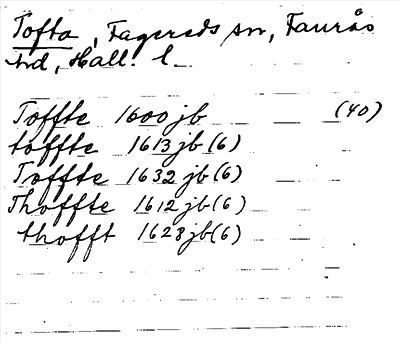 Tofta, Fagereds sn, Faurås
hd, Hall. l.
Toffte 1600 jb (40)
toffte 1613 jb (6)
Toffte 1632 jb (6)
Thoffte 1612 jb (6)
thofft 1628 jb (6)